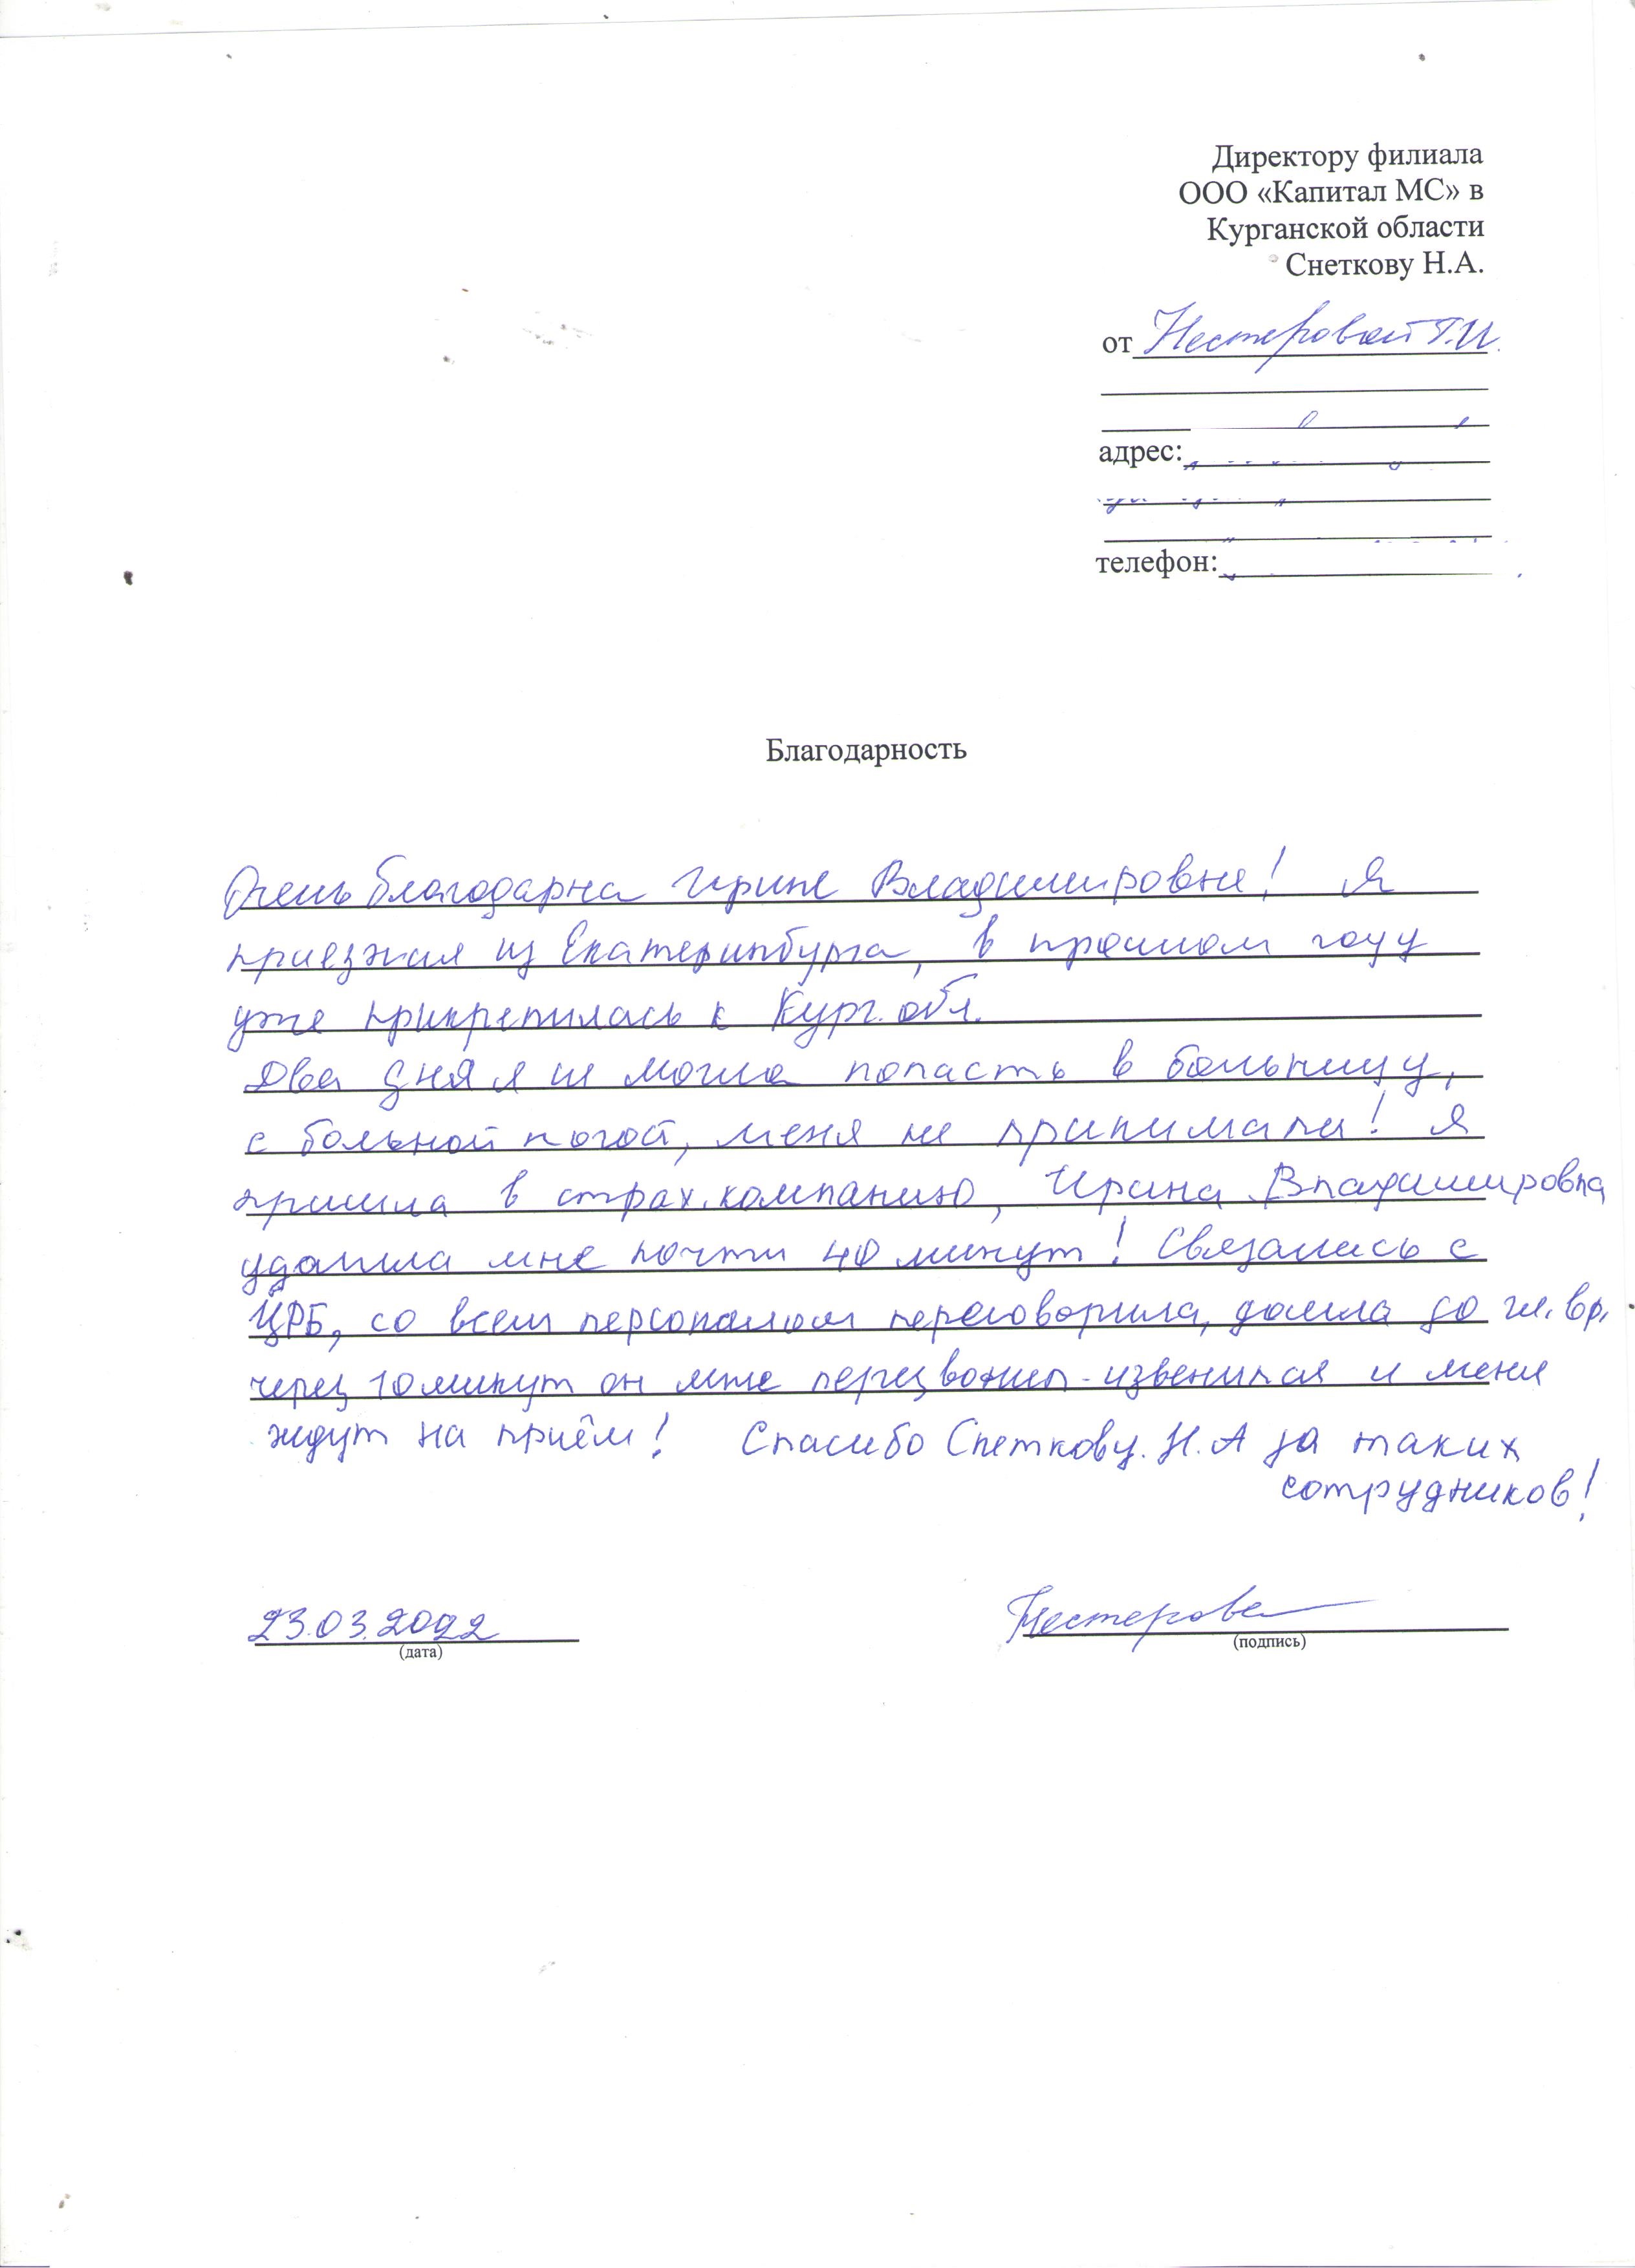 Директору филиала
ООО «Капитал МС» в
Курганской области
Снеткову Н.А.
от Нестеровой Т.И.
адрес:
телефон:
Благодарность
Очень благодарна Ирине Владимировне! Я
приезжая из Екатеринбурга, в прошлом году
уже прикрепилась к Кург. обл.
Два дня я не могла попасть в больницу,
с больной ногой, меня не принимали! Я
пришла в страх. компанию, Ирина Владимировна
уделила мне почти 40 минут! Связалась с
ЦРБ, со всем персоналом переговорила, дошла до гл. вр,
через 10 минут он мне перезвонил - извенился и меня
ждут на приём! Спасибо Снеткову. Н. А за таких
сотрудников!
23.03.2022
Нестерова
(дата)
(подпись)